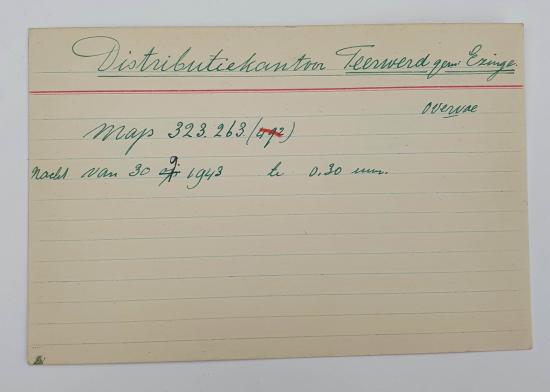 Distributiekantoor Teerwerd gem: Ezinge.
overvae
Map 323.263. (492)
Nacht van 30 9. 1943 te 0.30 uur.